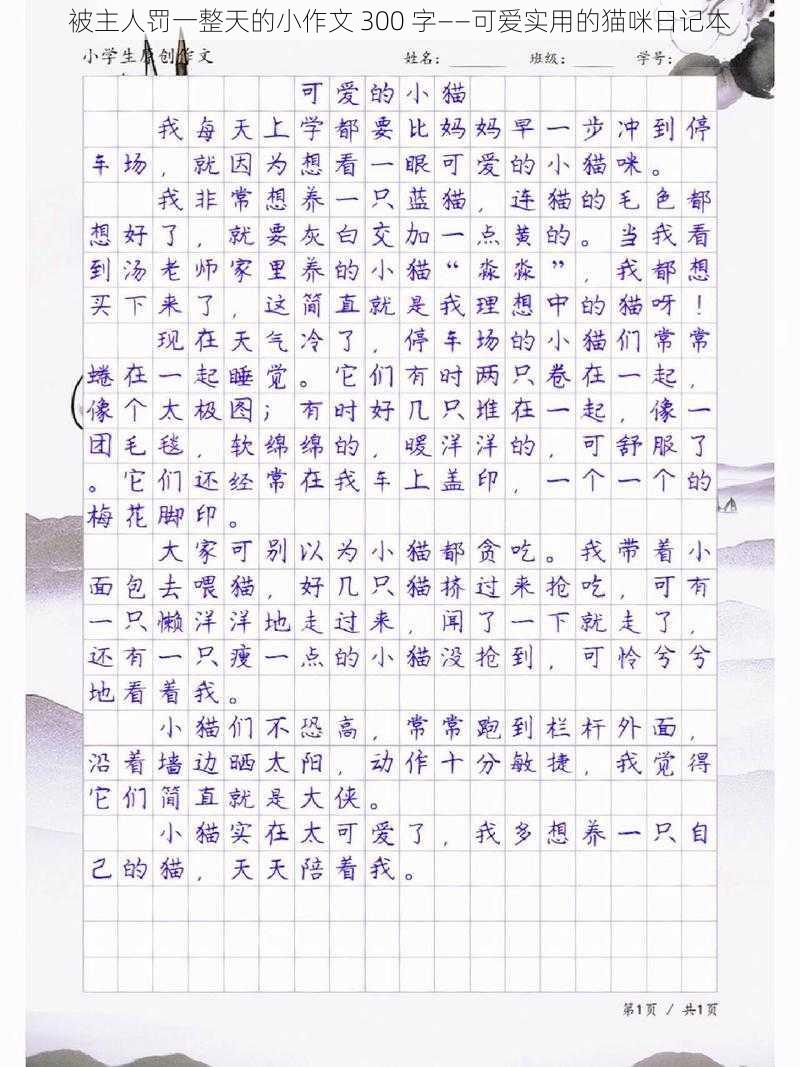 被主人罚一整天的小作文 300 字——可爱实用的猫咪日记本
小学生原创作文 姓名： 班级： 学号：
可爱的小猫
我每天上学都要比妈妈早一步冲到停
车场，就因为想看一眼可爱的小猫咪。
我非常想养一只蓝猫，连猫的毛色都
想好了，就要灰白交加一点黄的。当我看
到汤老师家里养的小猫“淼淼”，我都想
买下来了，这简直就是我理想中的猫呀！
现在天气冷了，停车场的小猫们常常
蜷在一起睡觉。它们有时两只卷在一起，
像个太极图；有时好几只堆在一起，像一
团毛毯，软绵绵的，暖洋洋的，可舒服了
。它们还经常在我车上盖印，一个一个的
梅花脚印。
大家可别以为小猫都贪吃。我带着小
面包去喂猫，好几只猫挤过来抢吃，可有
一只懒洋洋地走过来，闻了一下就走了，
还有一只瘦一点的小猫没抢到，可怜兮兮
地看着我。
小猫们不恐高，常常跑到栏杆外面，
沿着墙边晒太阳，动作十分敏捷，我觉得
它们简直就是大侠。
小猫实在太可爱了，我多想养一只自
己的猫，天天陪着我。
第1页 / 共1页